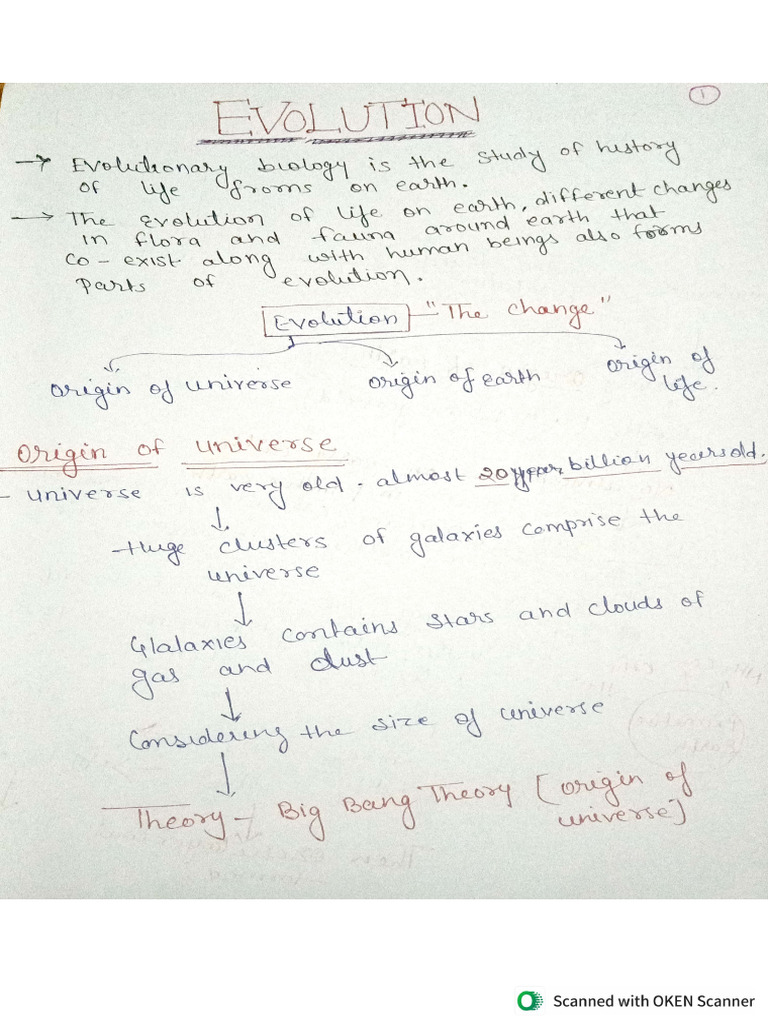 1
EVOLUTION
→ Evolutionary biology is the study of history
of life froms on earth.
→ The Evolution of life on earth, different changes
in flora and fauna around earth that
co-exist along with human beings also forms
parts of evolution.
Evolution — "The change"
origin of universe origin of earth origin of life.
origin of universe
- universe is very old. almost 20 billion years old.
↓
Huge clusters of galaxies comprise the
universe
↓
Glalaxies contains stars and clouds of
gas and dust
↓
Considering the size of universe
↓
Theory - Big Bang Theory [origin of
universe]
Scanned with OKEN Scanner